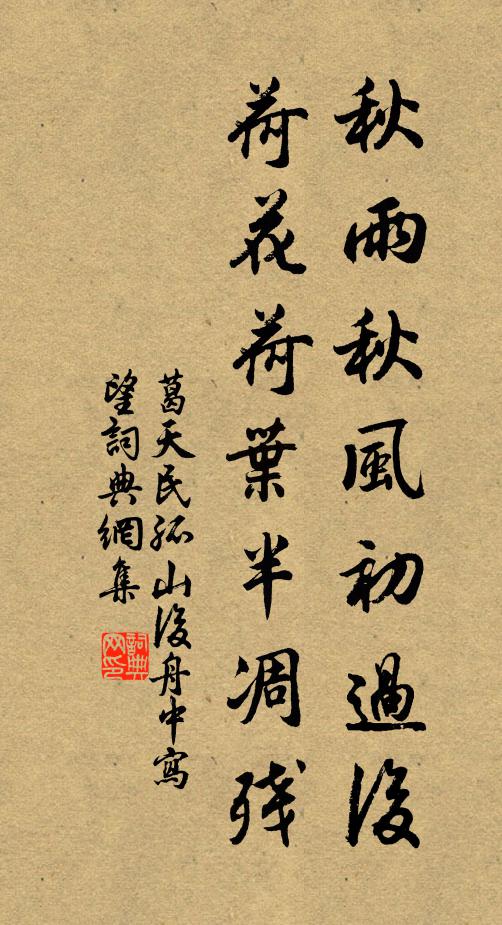 秋雨秋風初過後
荷花荷葉半凋残
葛天民孤山後舟中寫
望詞典網集
詞典网印